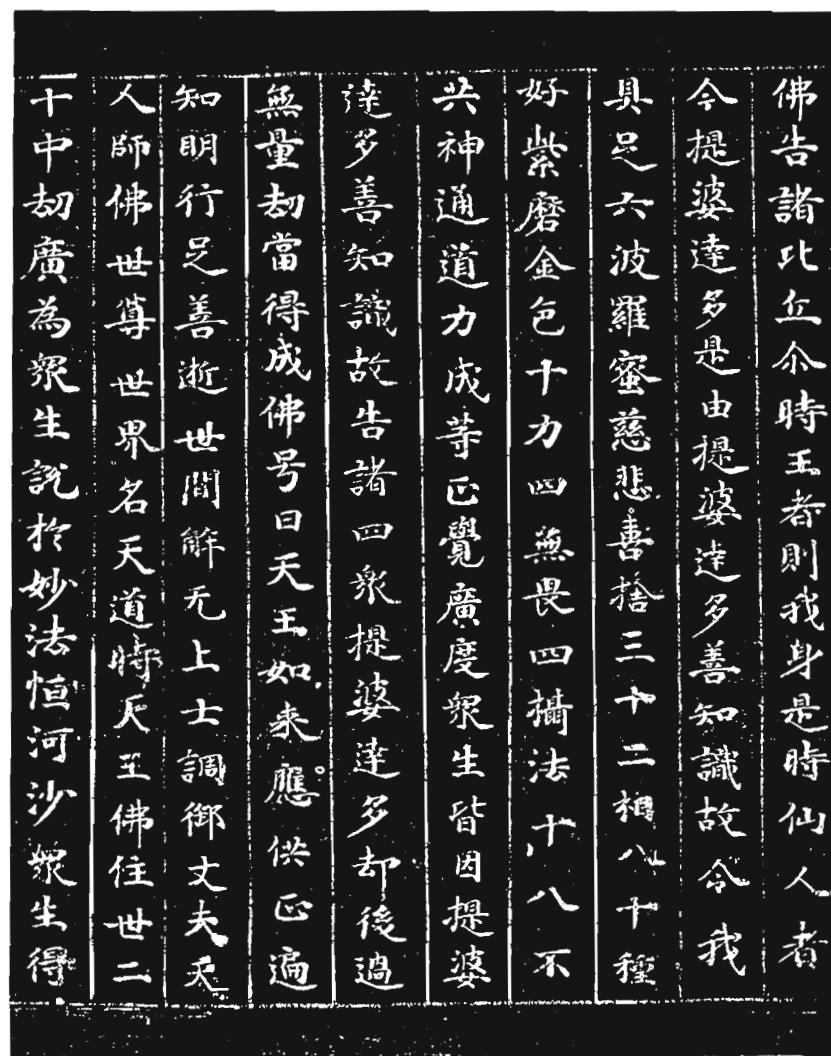 佛告諸比丘尒時王者則我身是時仙人者
今提婆達多是由提婆達多善知識故令我
具足六波羅蜜慈悲喜捨三十二相八十種
好紫磨金色十力四無畏四攝法十八不
共神通道力成等正覺廣度衆生皆因提婆
達多善知識故告諸四衆提婆達多却後過
無量劫當得成佛号曰天王如来應供正遍
知明行足善逝世間解无上士調御丈夫天
人師佛世尊世界名天道時天王佛住世二
十中劫廣為衆生説於妙法恒河沙衆生得